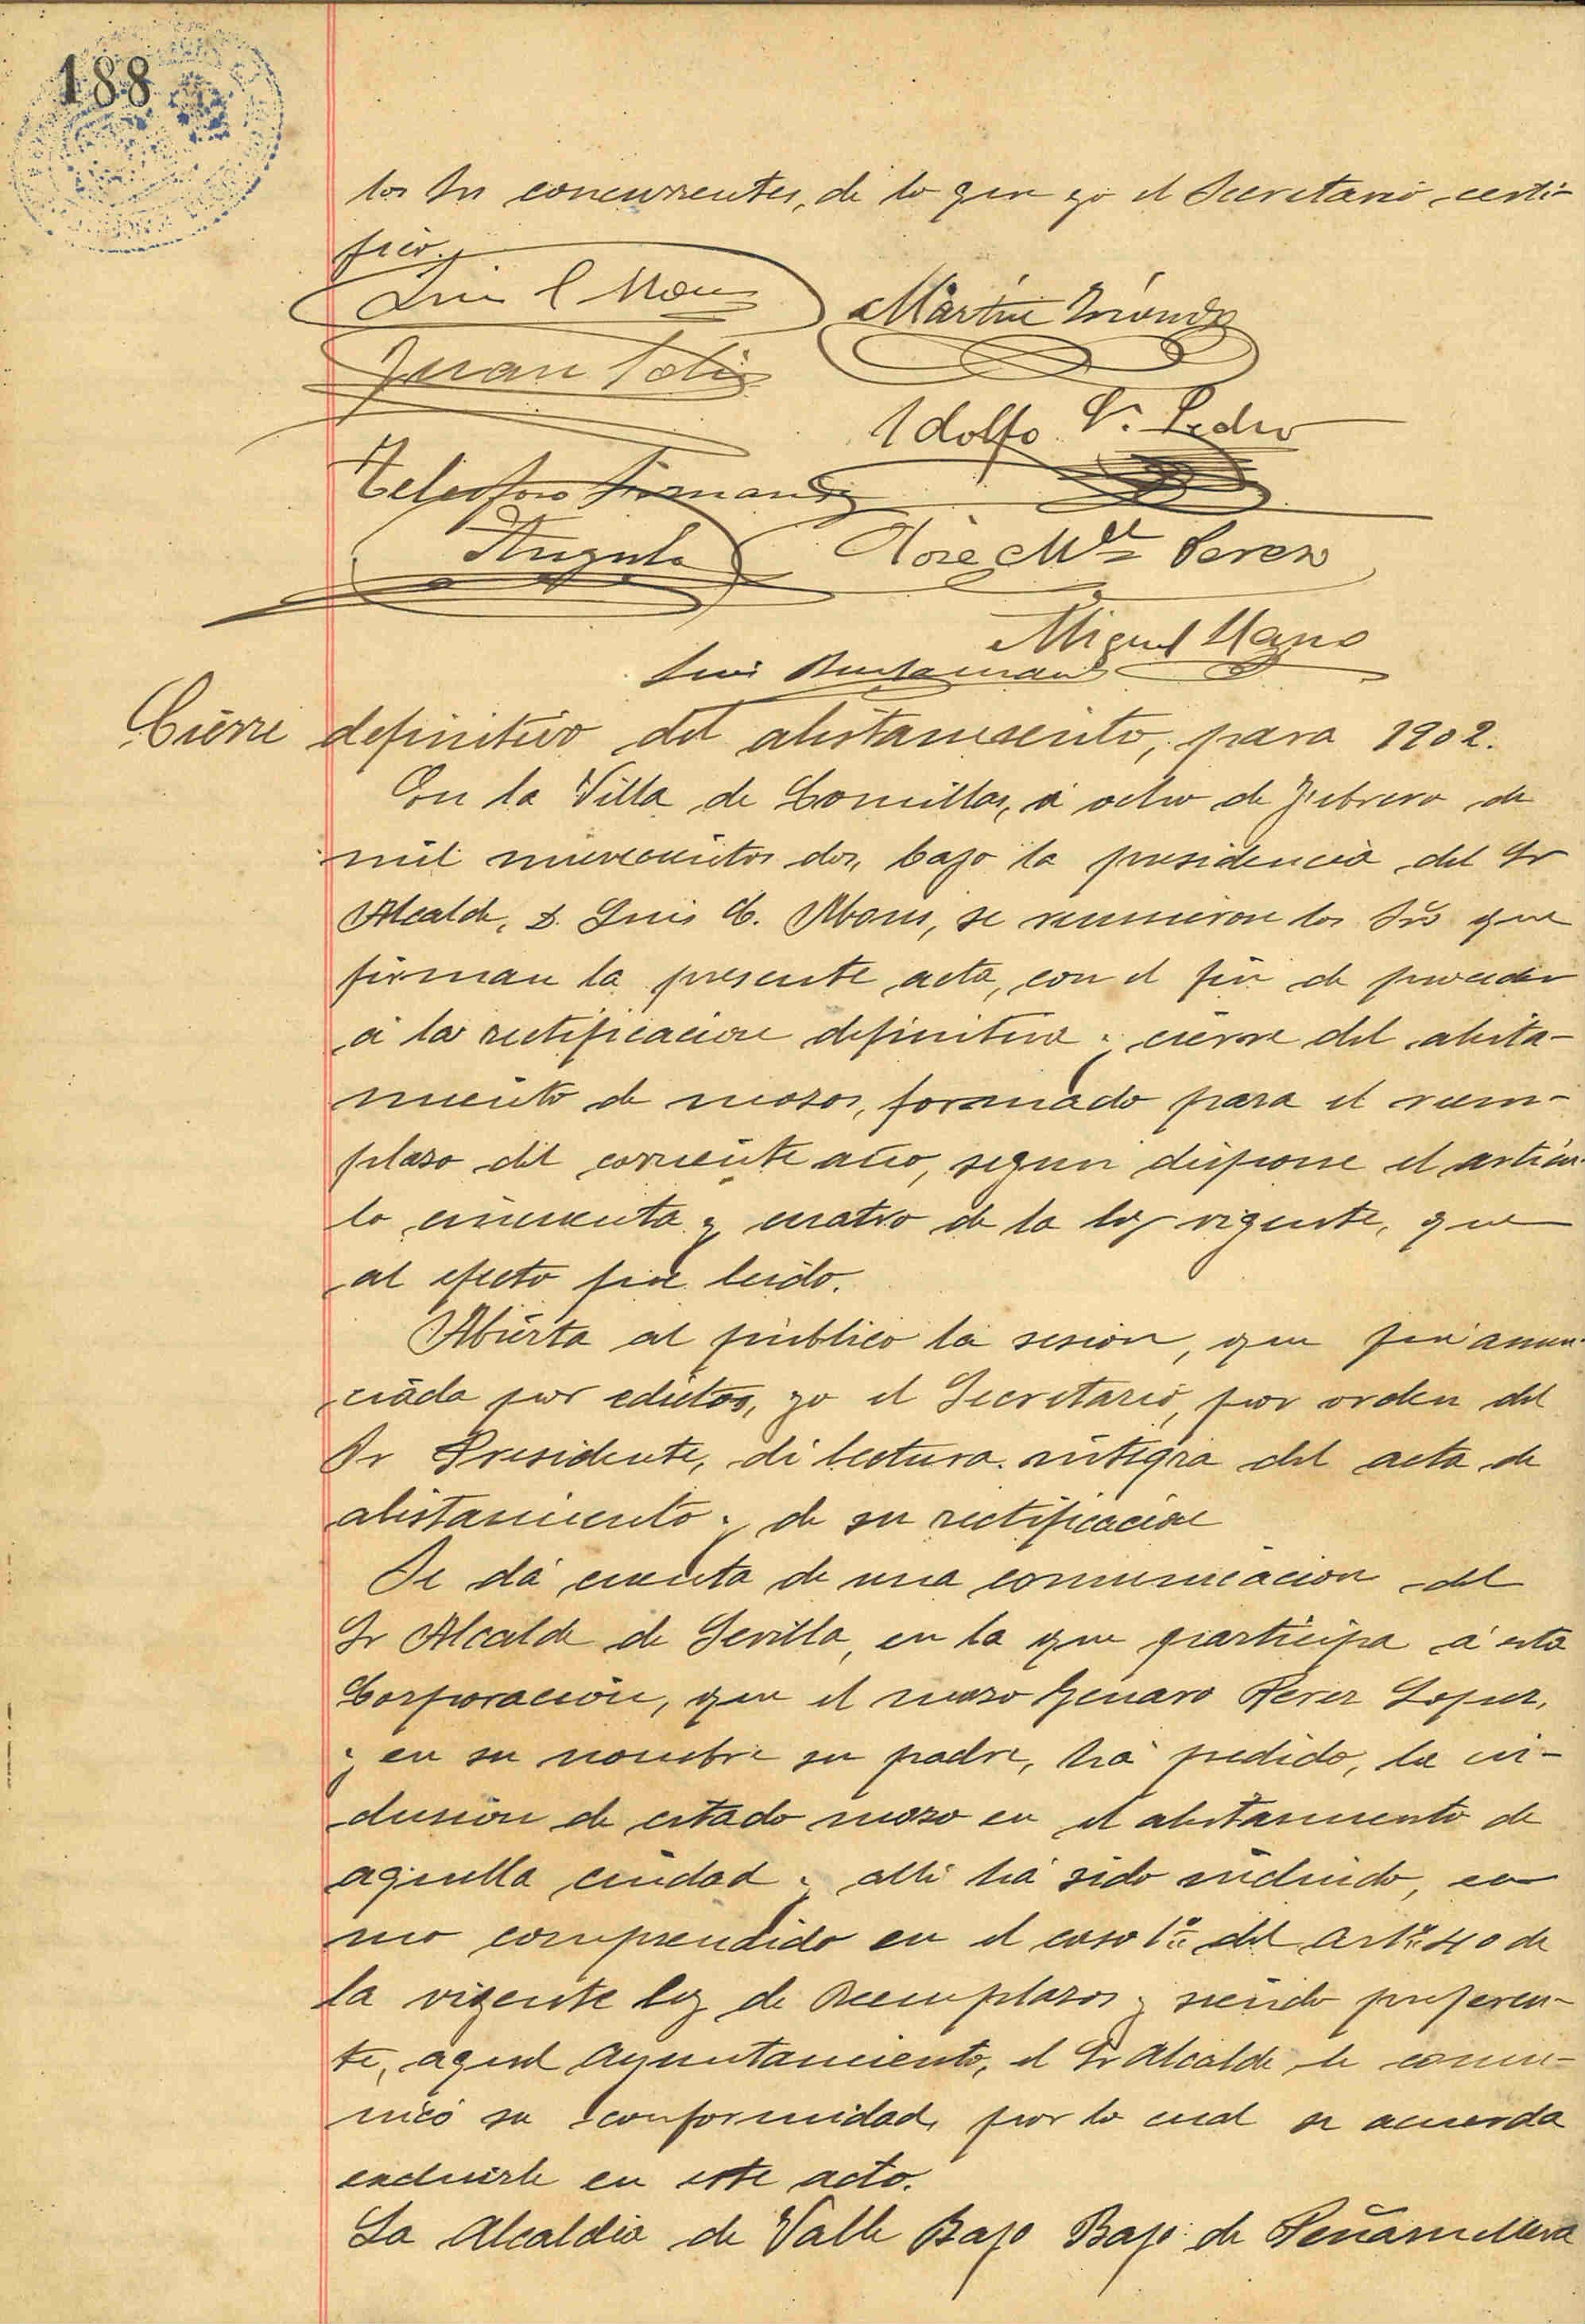 188
los Srs concurrentes, de lo que yo el Secretario, certi-
fico.
Luis C Mons
Martin
Juan Solis
Adolfo V. Pedro
Telesforo Fernandez
Angulo
José Mª Perez
Miguel Llano
Luis Bustamante
Cierre definitivo del alistamiento, para 1902.
En la Villa de Comillas, á ocho de Febrero de
mil novecientos dos, bajo la presidencia del Sr
Alcalde, D. Luis C. Mons, se reunieron los Srs que
firman la presente acta, con el fin de proceder
á la rectificacion definitiva y cierre del alista-
miento de mozos, formado para el reem-
plazo del corriente año, segun dispone el artícu-
lo cincuenta y cuatro de la ley vigente, que
al efecto fue leido.
Abierta al público la sesion, que fue anun-
ciada por edictos, yo el Secretario, por orden del
Sr Presidente, di lectura integra del acta de
alistamiento y de su rectificacion
Se dá cuenta de una comunicacion del
Sr Alcalde de Sevilla, en la que participa á esta
Corporación, que el mozo Genaro Perez Lopez,
y en su nombre su padre, há pedido, la in-
clusion de citado mozo en el alistamiento de
aquella ciudad y alli há sido incluido, co-
mo comprendido en el caso 1º del artº 40 de
la vigente ley de Reemplazos y siendo preferen-
te, aquel Ayuntamiento, el Sr Alcalde le comu-
nicó su conformidad, por lo cual se acuerda
excluirle en este acto.
La Alcaldia de Valle Bajo Bajo de Peñamellera